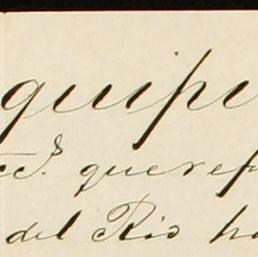 quipu
S. que ref
del Rio ha